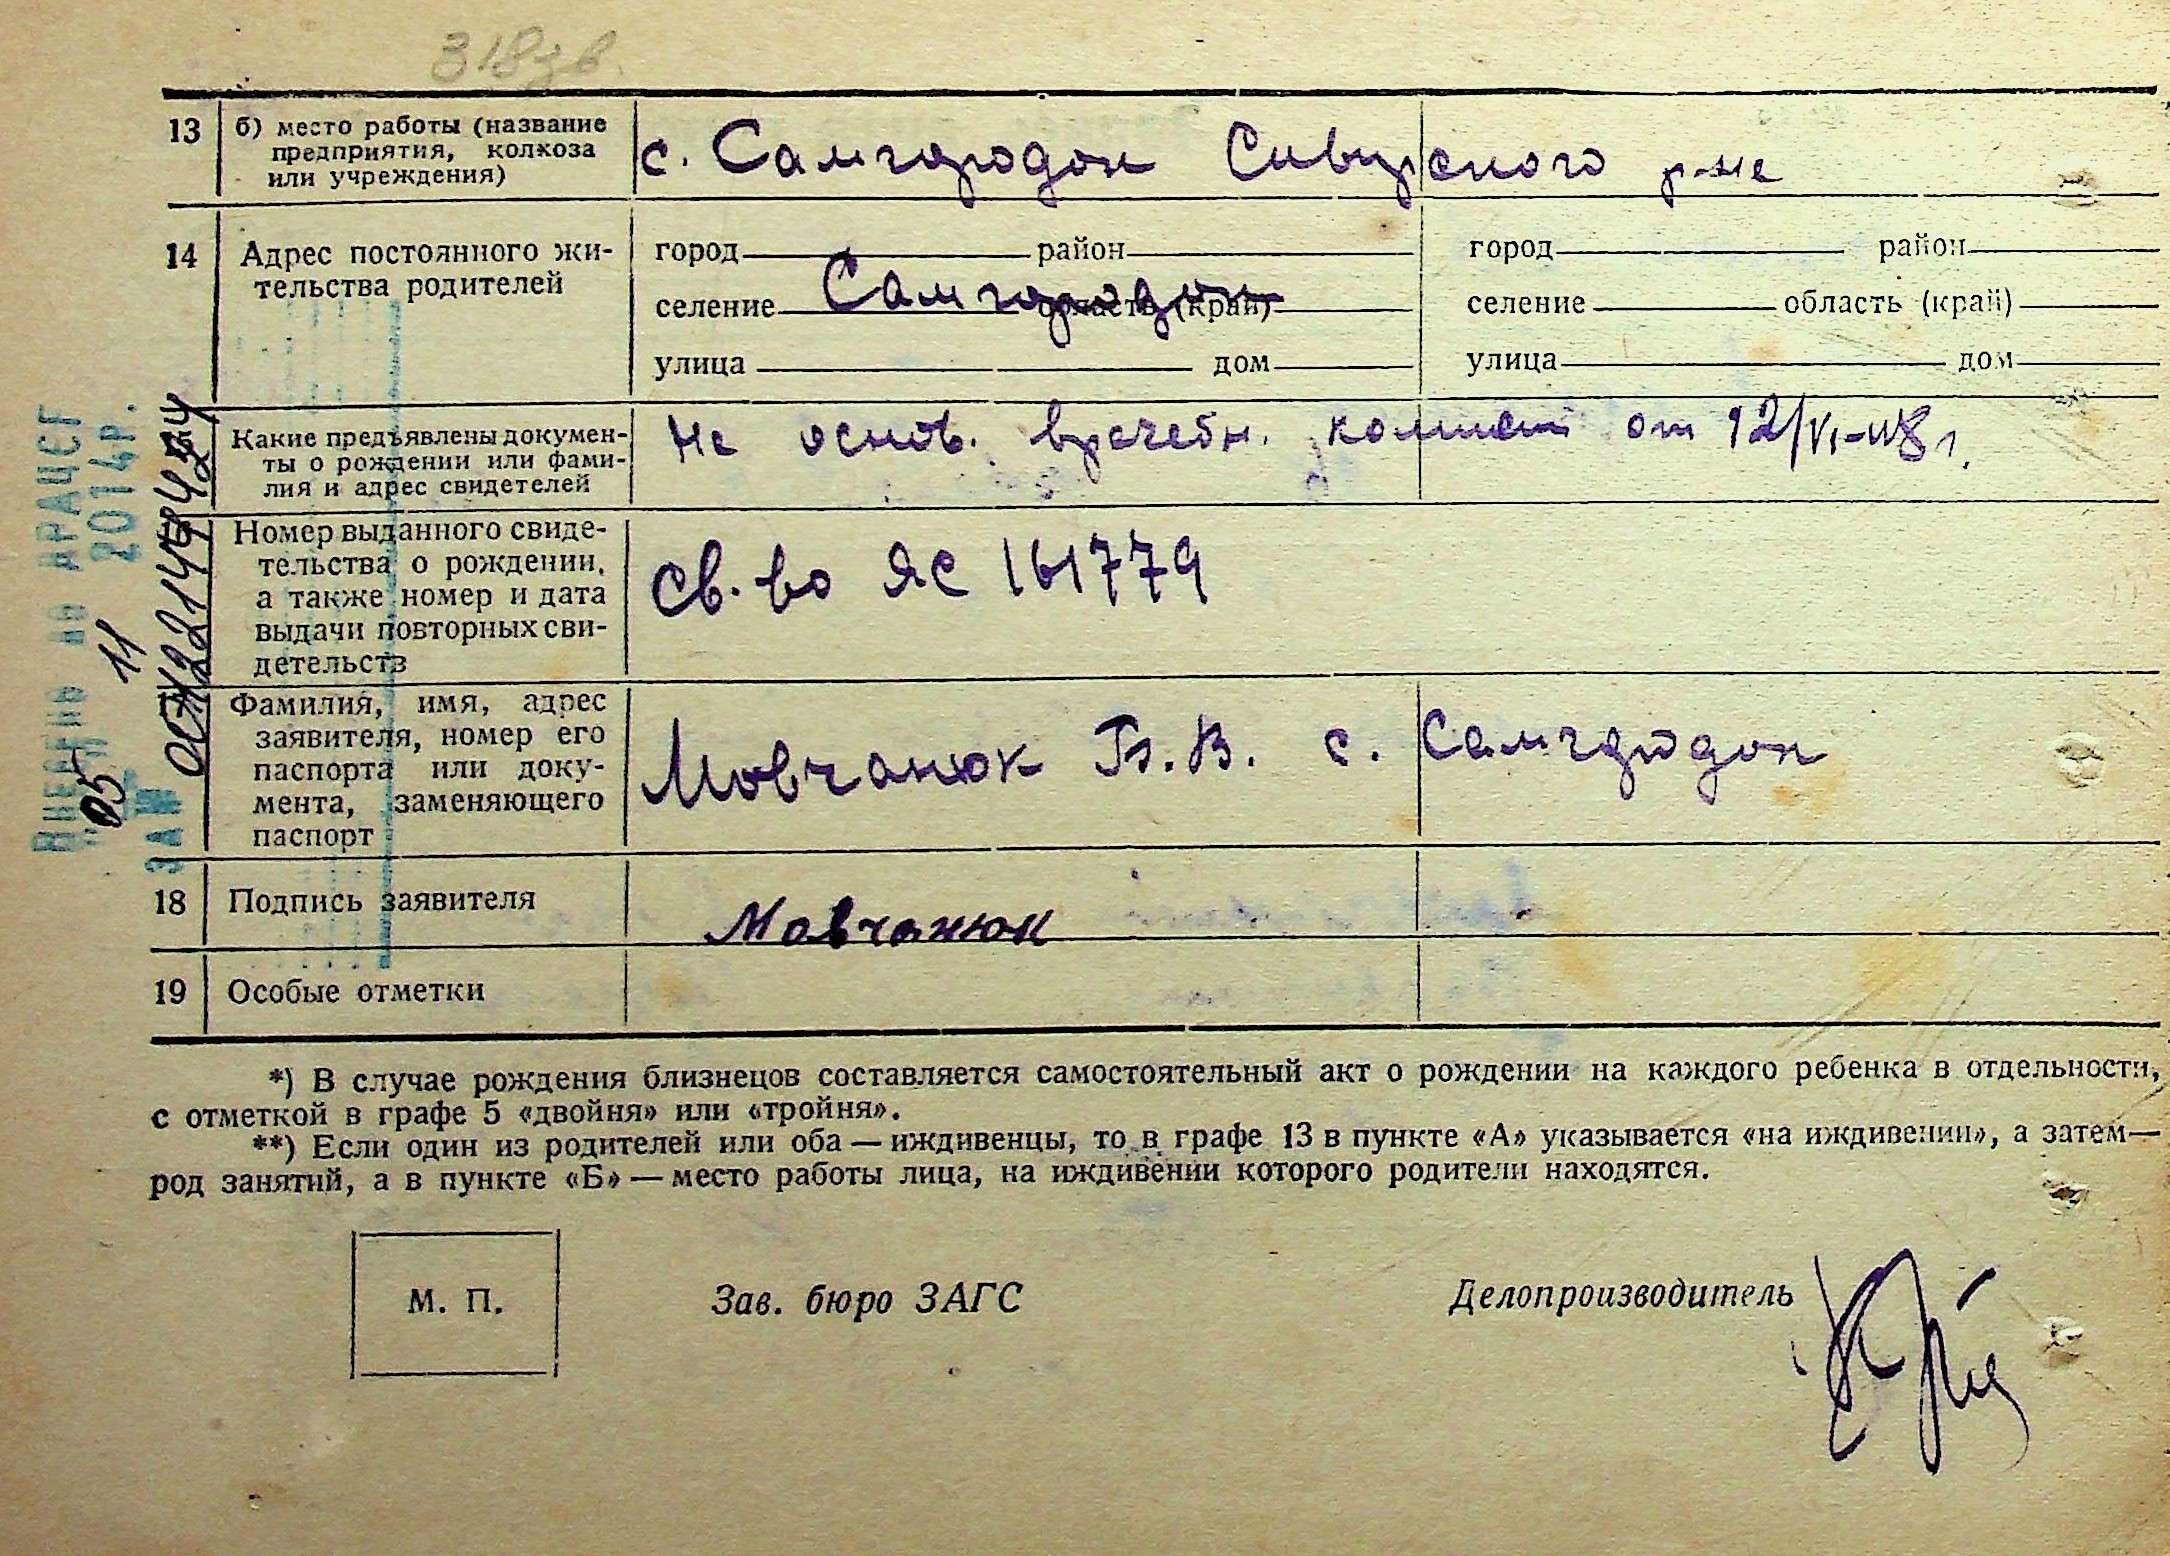 318зв.
13 б) место работы (название
предприятия, колхоза
или учреждения)
с. Самгородок р-на
14 Адрес постоянного жи-
тельства родителей
город район город район
селение Самгородок область (край) селение область (край)
улица дом улица дом
Какие предъявлены докумен-
ты о рождении или фами-
лия и адрес свидетелей
На основ. врачебн. от 12/VI-48 г.
Номер выданного свиде-
тельства о рождении,
а также номер и дата
выдачи повторных сви-
детельств
Св-во ЯС 161779
Фамилия, имя, адрес
заявителя, номер его
паспорта или доку-
мента, заменяющего
паспорт
Мовчанюк В. с. Самгородок
18 Подпись заявителя
Мовчанюк
19 Особые отметки
Внесено до ДРАЦСГ
"05" 11 2014р.
ЗА №
*) В случае рождения близнецов составляется самостоятельный акт о рождении на каждого ребенка в отдельности,
с отметкой в графе 5 «двойня» или «тройня».
**) Если один из родителей или оба — иждивенцы, то в графе 13 в пункте «А» указывается «на иждивении», а затем—
род занятий, а в пункте «Б» — место работы лица, на иждивении которого родители находятся.
М. П.
Зав. бюро ЗАГС
Делопроизводитель